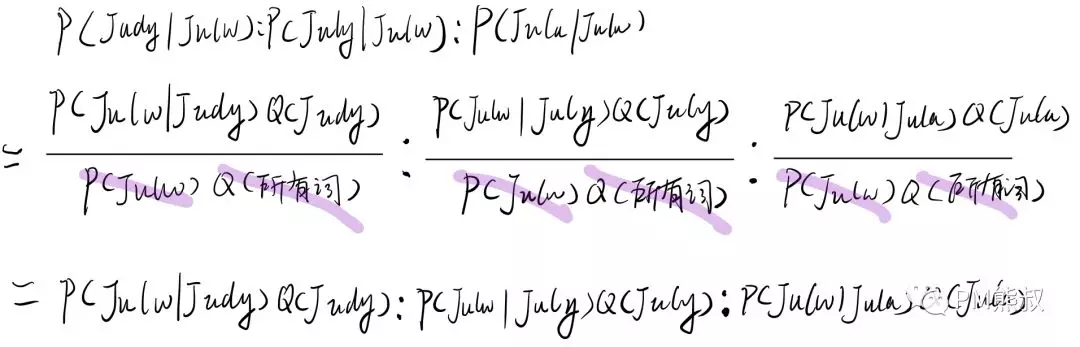 P(Judy|Julw):P(July|Julw):P(Jula|Julw)
= P(Julw|Judy)Q(Judy) / P(Julw)Q(所有词) : P(Julw|July)Q(July) / P(Julw)Q(所有词) : P(Julw|Jula)Q(Jula) / P(Julw)Q(所有词)
= P(Julw|Judy)Q(Judy):P(Julw|July)Q(July):P(Julw|Jula)Q(Jula)
PM熊叔